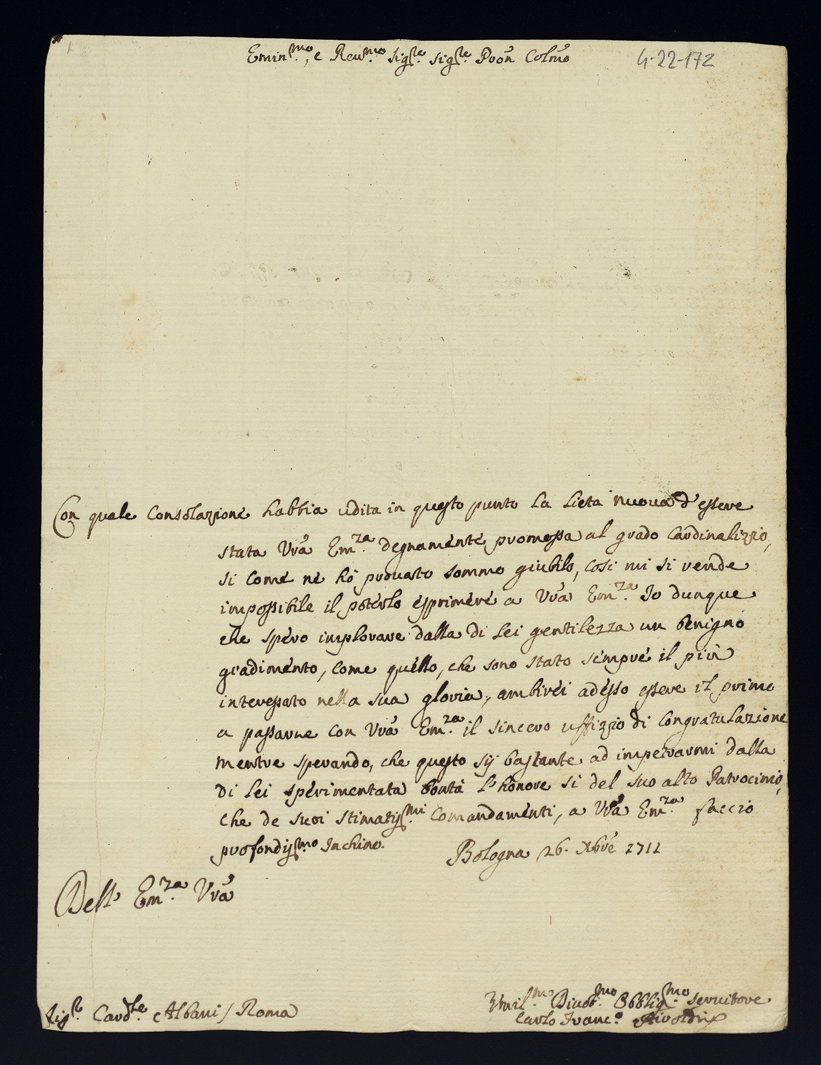 Emin.mo, e Reu.mo Sig.re Sig.re Pron Colmo
4-22-172
Con quale Consolazione habbia udita in questo punto la lieta nuoua d'essere
stata Vra Em.za degnamente promossa al grado Cardinalizzio,
si come ne hò prouato sommo giubilo, così mi si rende
impossibile il poterlo esprimere a Vra Em.za Io dunque
che spero implorare dalla di lei gentilezza un benigno
gradimento, come quello, che sono stato sempre il più
interessato nella sua gloria, ambirei adesso essere il primo
a passarne con Vra Em.za il sincero uffizzio di Congratulazione
mentre sperando, che questo sij bastante ad impetrarmi dalla
di lei sperimentata bontà l'honore si del suo alto Patrocinio,
che de suoi stimatiss.mi Comandamenti, a Vra Em.za faccio
profondiss.mo Inchino. Bologna 26. Xbre 1711
Dell' Em.za Vra
Sig.r Card.le Albani / Roma
Humil.mo Diuot.mo Obblig.mo Seruitore
Carlo Franc.o